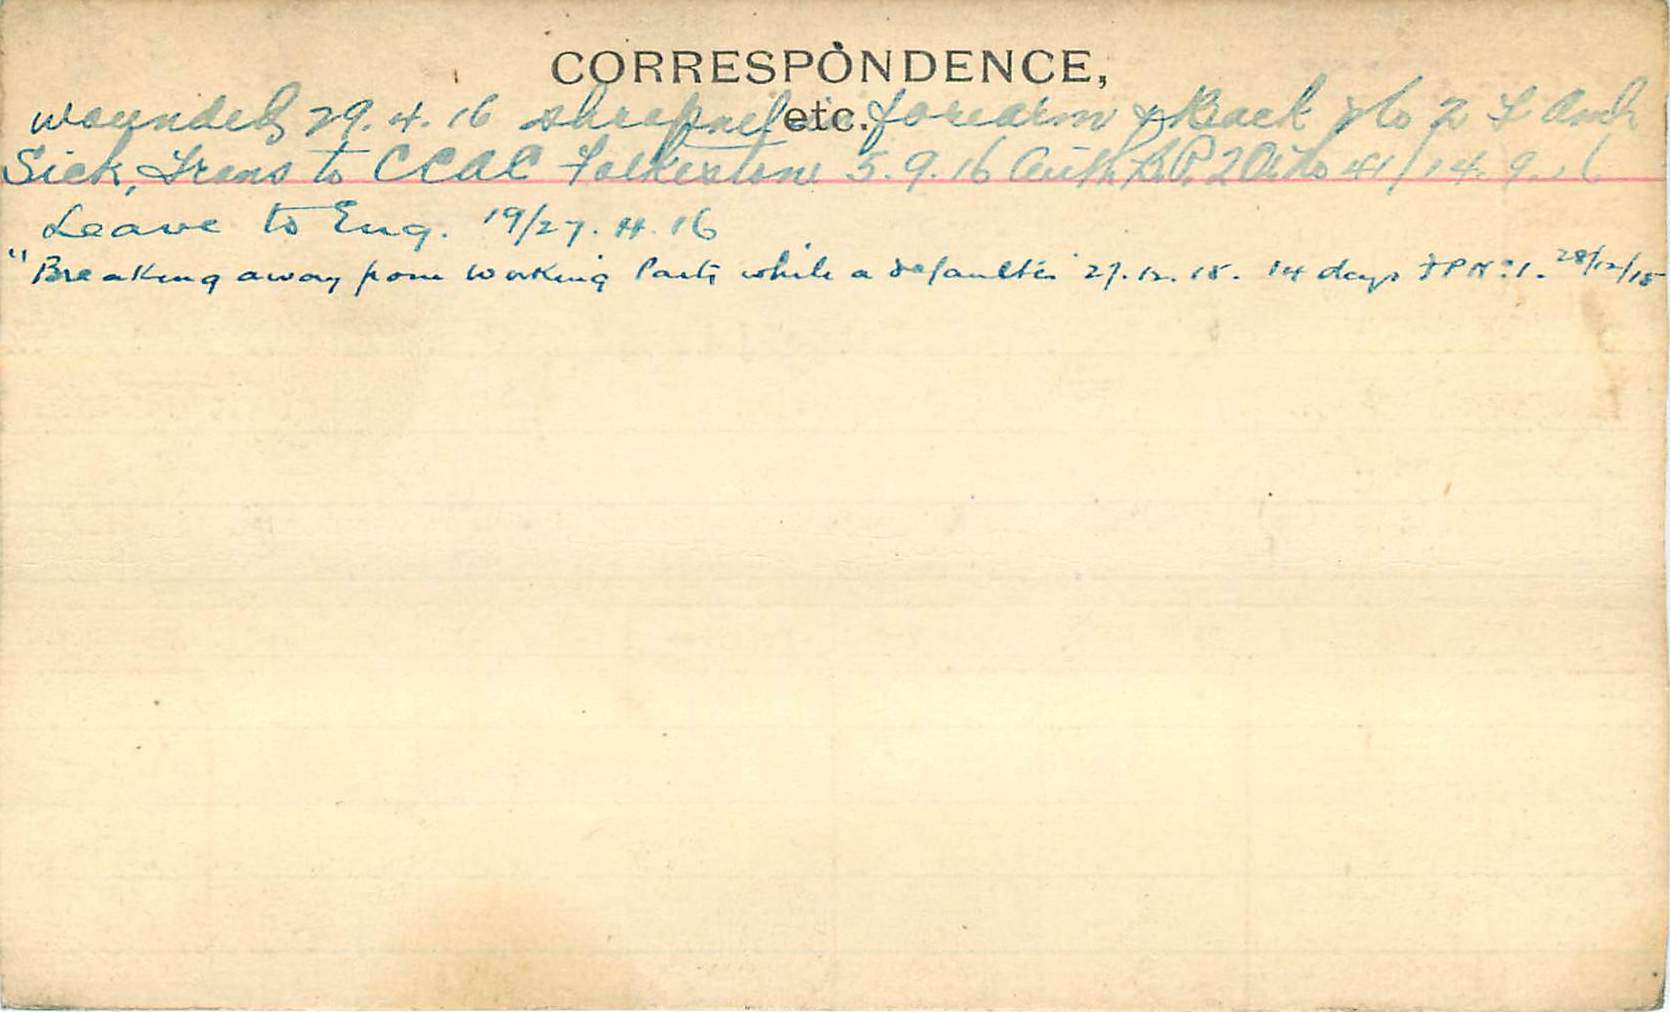 CORRESPONDENCE,
etc.
Wounded 29.4.16 shrapnel forearm & Back to 2 F Amb
Sick, Trans to CCAC Folkestone 5.9.16 Auth 41/14.9.16
Leave to Eng. 19/27.4.16
"Breaking away from working Party while a defaulter" 27.12.15. 14 days FP No 1. 28/12/15